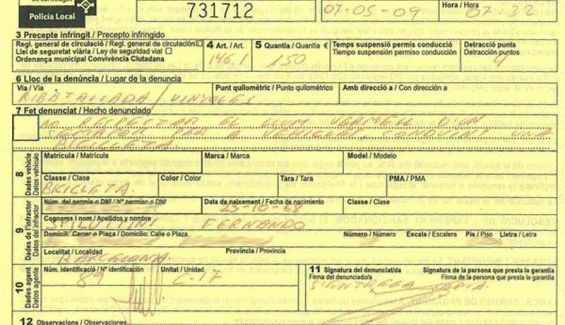 Policia Local
731712
07-05-09
Hora / Hora
07:32
3 Precepte infringit / Precepto infringido
Regl. general de circulació / Regl. general de circulación
Llei de seguretat viària / Ley de seguridad vial
Ordenança municipal Convivència Ciutadana
4 Art. / Art.
146.1
5 Quantia / Cuantía €
150
Temps suspensió permís conducció
Tiempo suspensión permiso conducción
Detracció punts
Detracción puntos
4
6 Lloc de la denúncia / Lugar de la denuncia
Via / Vía
RIBATALLADA / VINYOLES
Punt quilomètric / Punto quilométrico
Amb direcció a / Con dirección a
7 Fet denunciat / Hecho denunciado
NO RESPECTAR EL LLUM VERMELL D'UN
SEMAFOR PER A CONDUINT UNA
BICICLETA.
8
Dades vehicle
Datos vehículo
Matrícula / Matrícula
Marca / Marca
Model / Modelo
Classe / Clase
BICICLETA.
Color / Color
Tara / Tara
PMA / PMA
9
Dades de l'infractor
Datos del infractor
Núm. del permís o DNI / Nº permiso o DNI
Data de naixement / Fecha de nacimiento
23-10-68
Classe / Clase
Cognoms i nom / Apellidos y nombre
FERNANDO
Domicili: Carrer o Plaça / Domicilio: Calle o Plaza
Número / Número
Escala / Escalera
Pis / Piso
Lletra / Letra
Localitat / Localidad
BARCELONA
Província / Provincia
10
Dades agent
Datos agente
Núm. identificació / Nº identificación
89
Unitat / Unidad
C-17
11 Signatura del denunciat/da
Firma del denunciado/a
Signatura de la persona que presta la garantia
Firma de la persona que presta la garantía
S'ENTREGA COPIA
12 Observacions / Observaciones